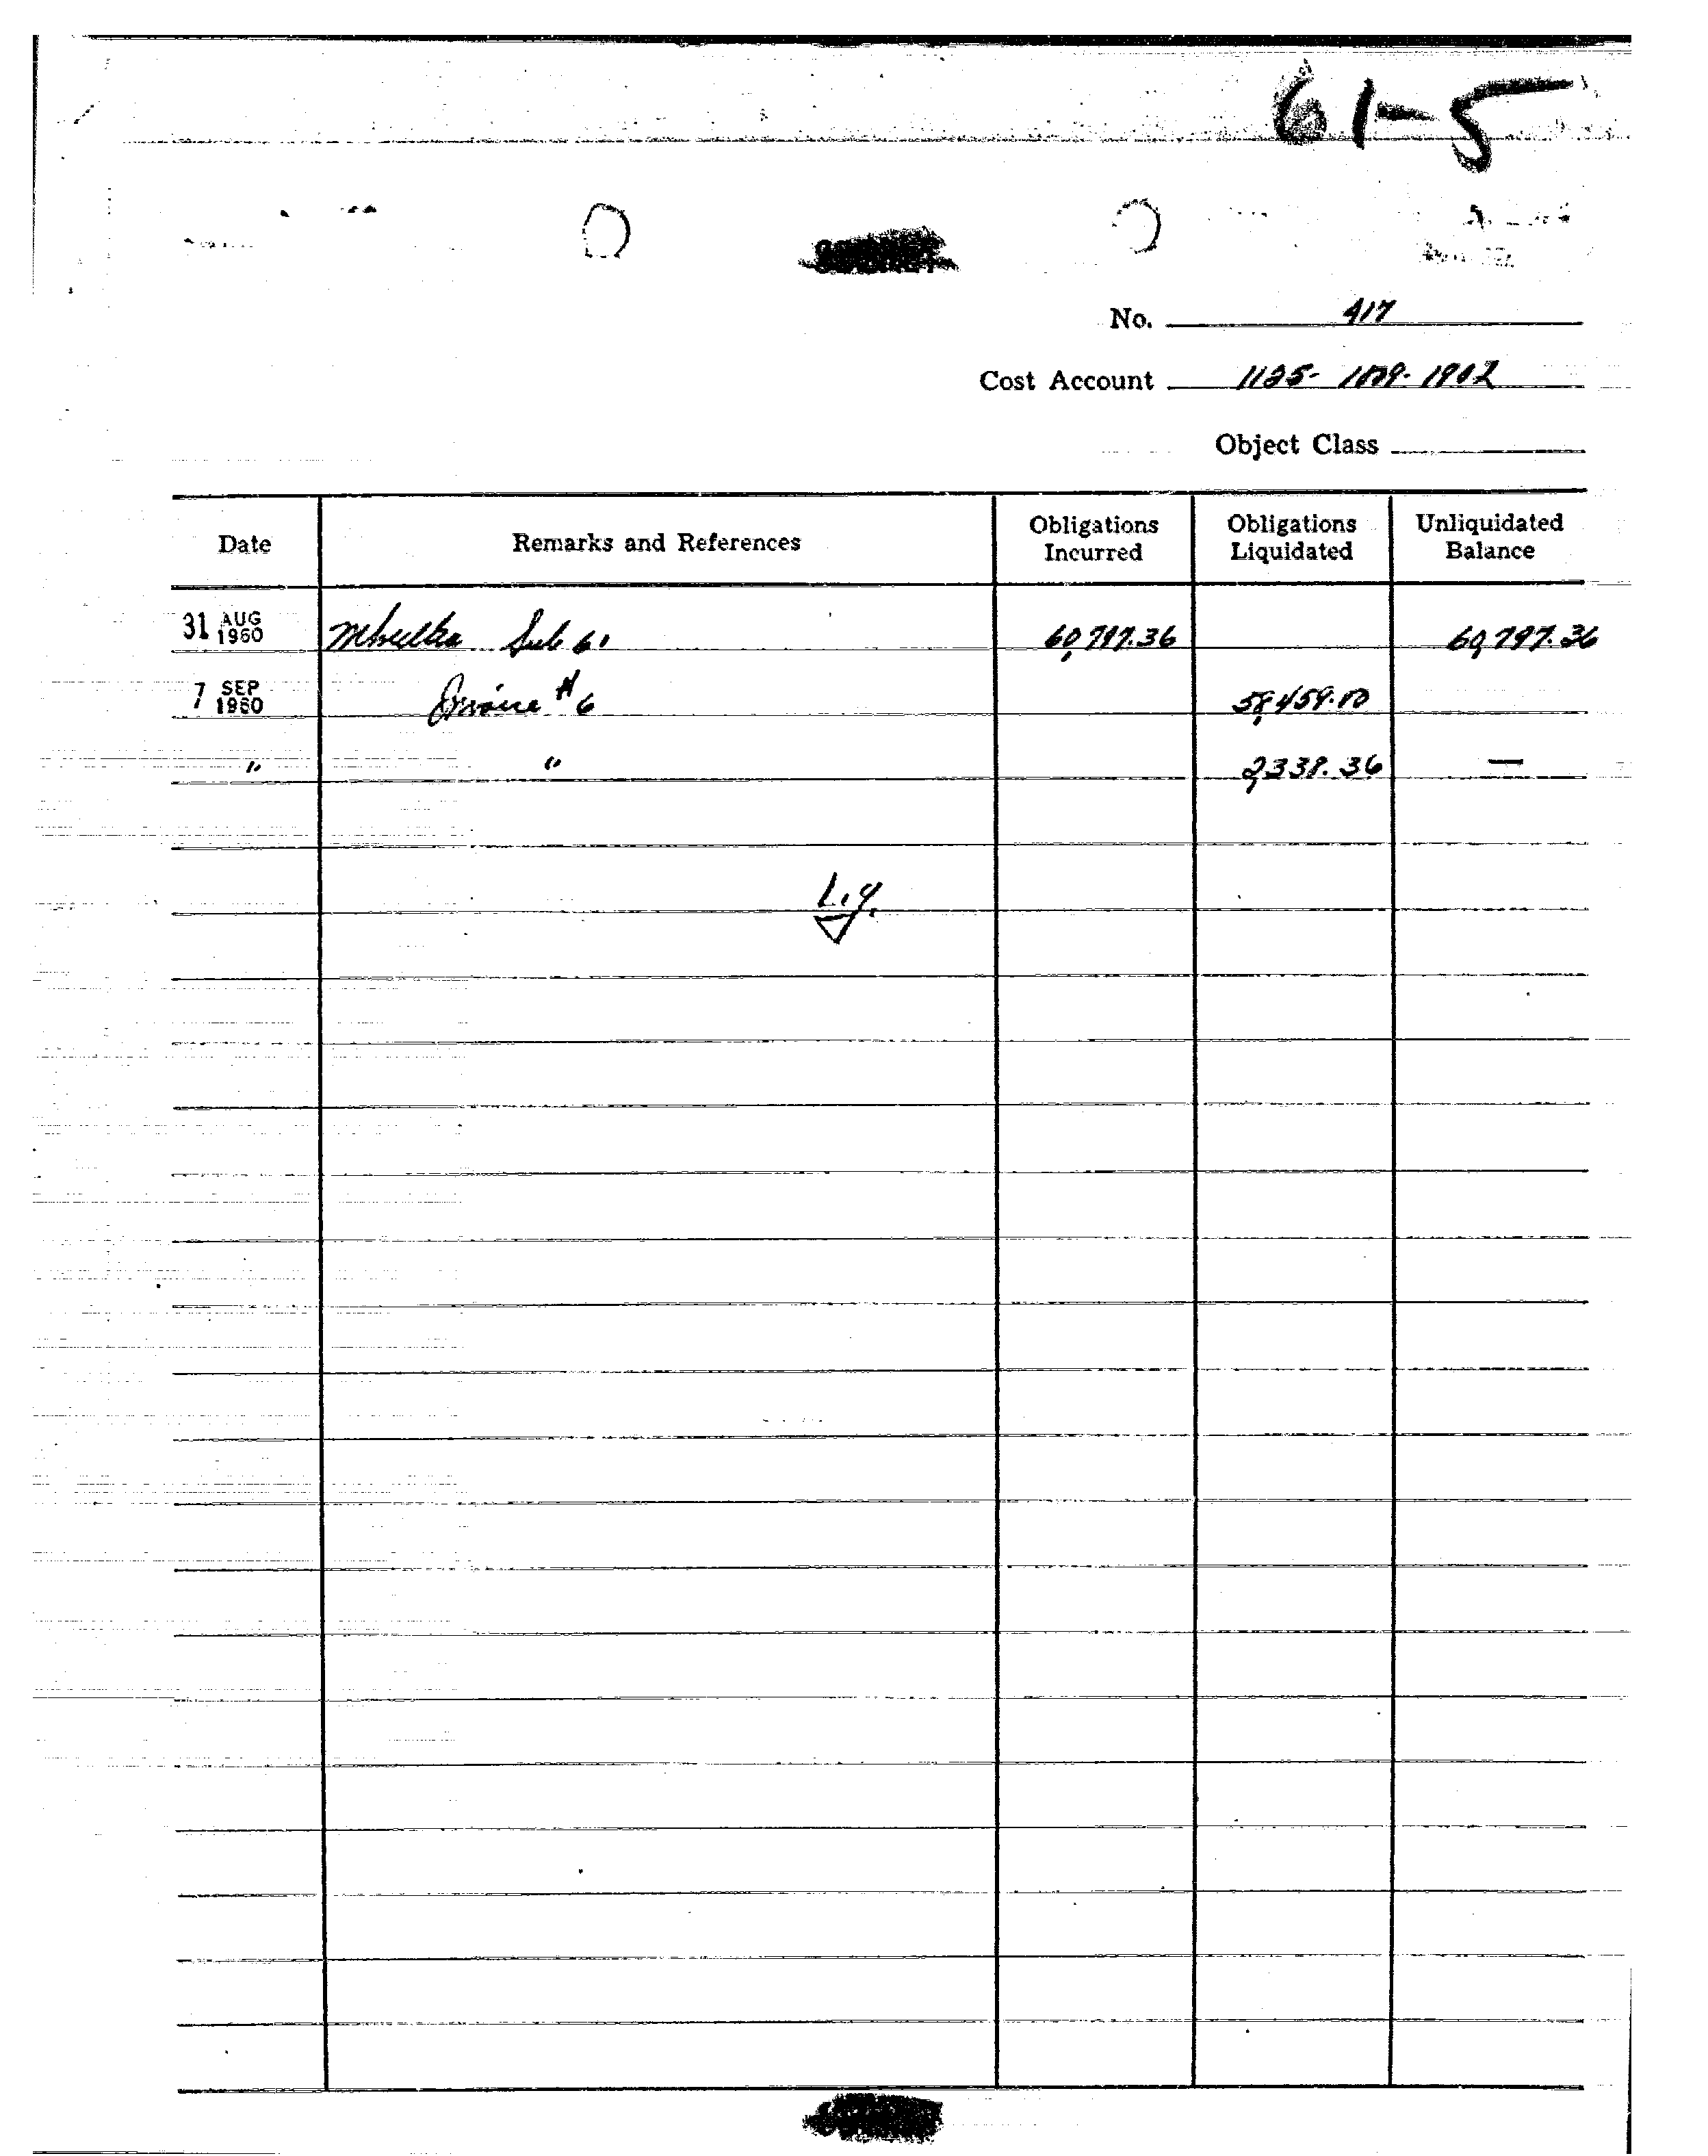 61-5
No. 417
Cost Account 1125-1009-1902
Object Class
Date Remarks and References Obligations Incurred Obligations Liquidated Unliquidated Balance
31 AUG 1960 Sub 61 60,797.36 60,797.36
7 SEP 1960 Invoice #6 58,459.00
" " 2,338.36 —